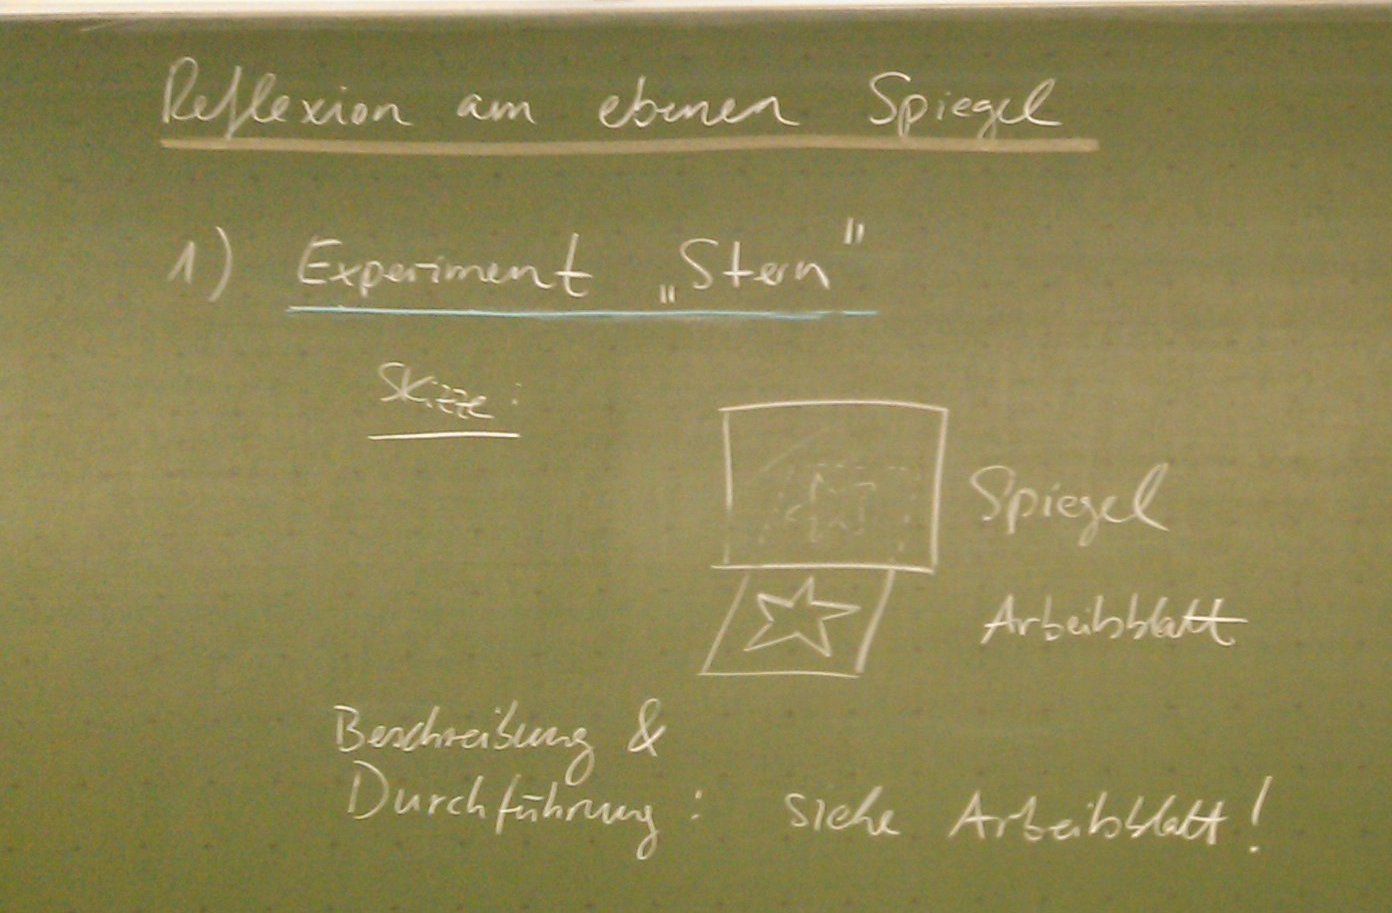 Reflexion am ebenen Spiegel
1) Experiment „Stern"
Skizze:
Spiegel
Arbeitsblatt
Beschreibung &
Durchführung: siehe Arbeitsblatt!